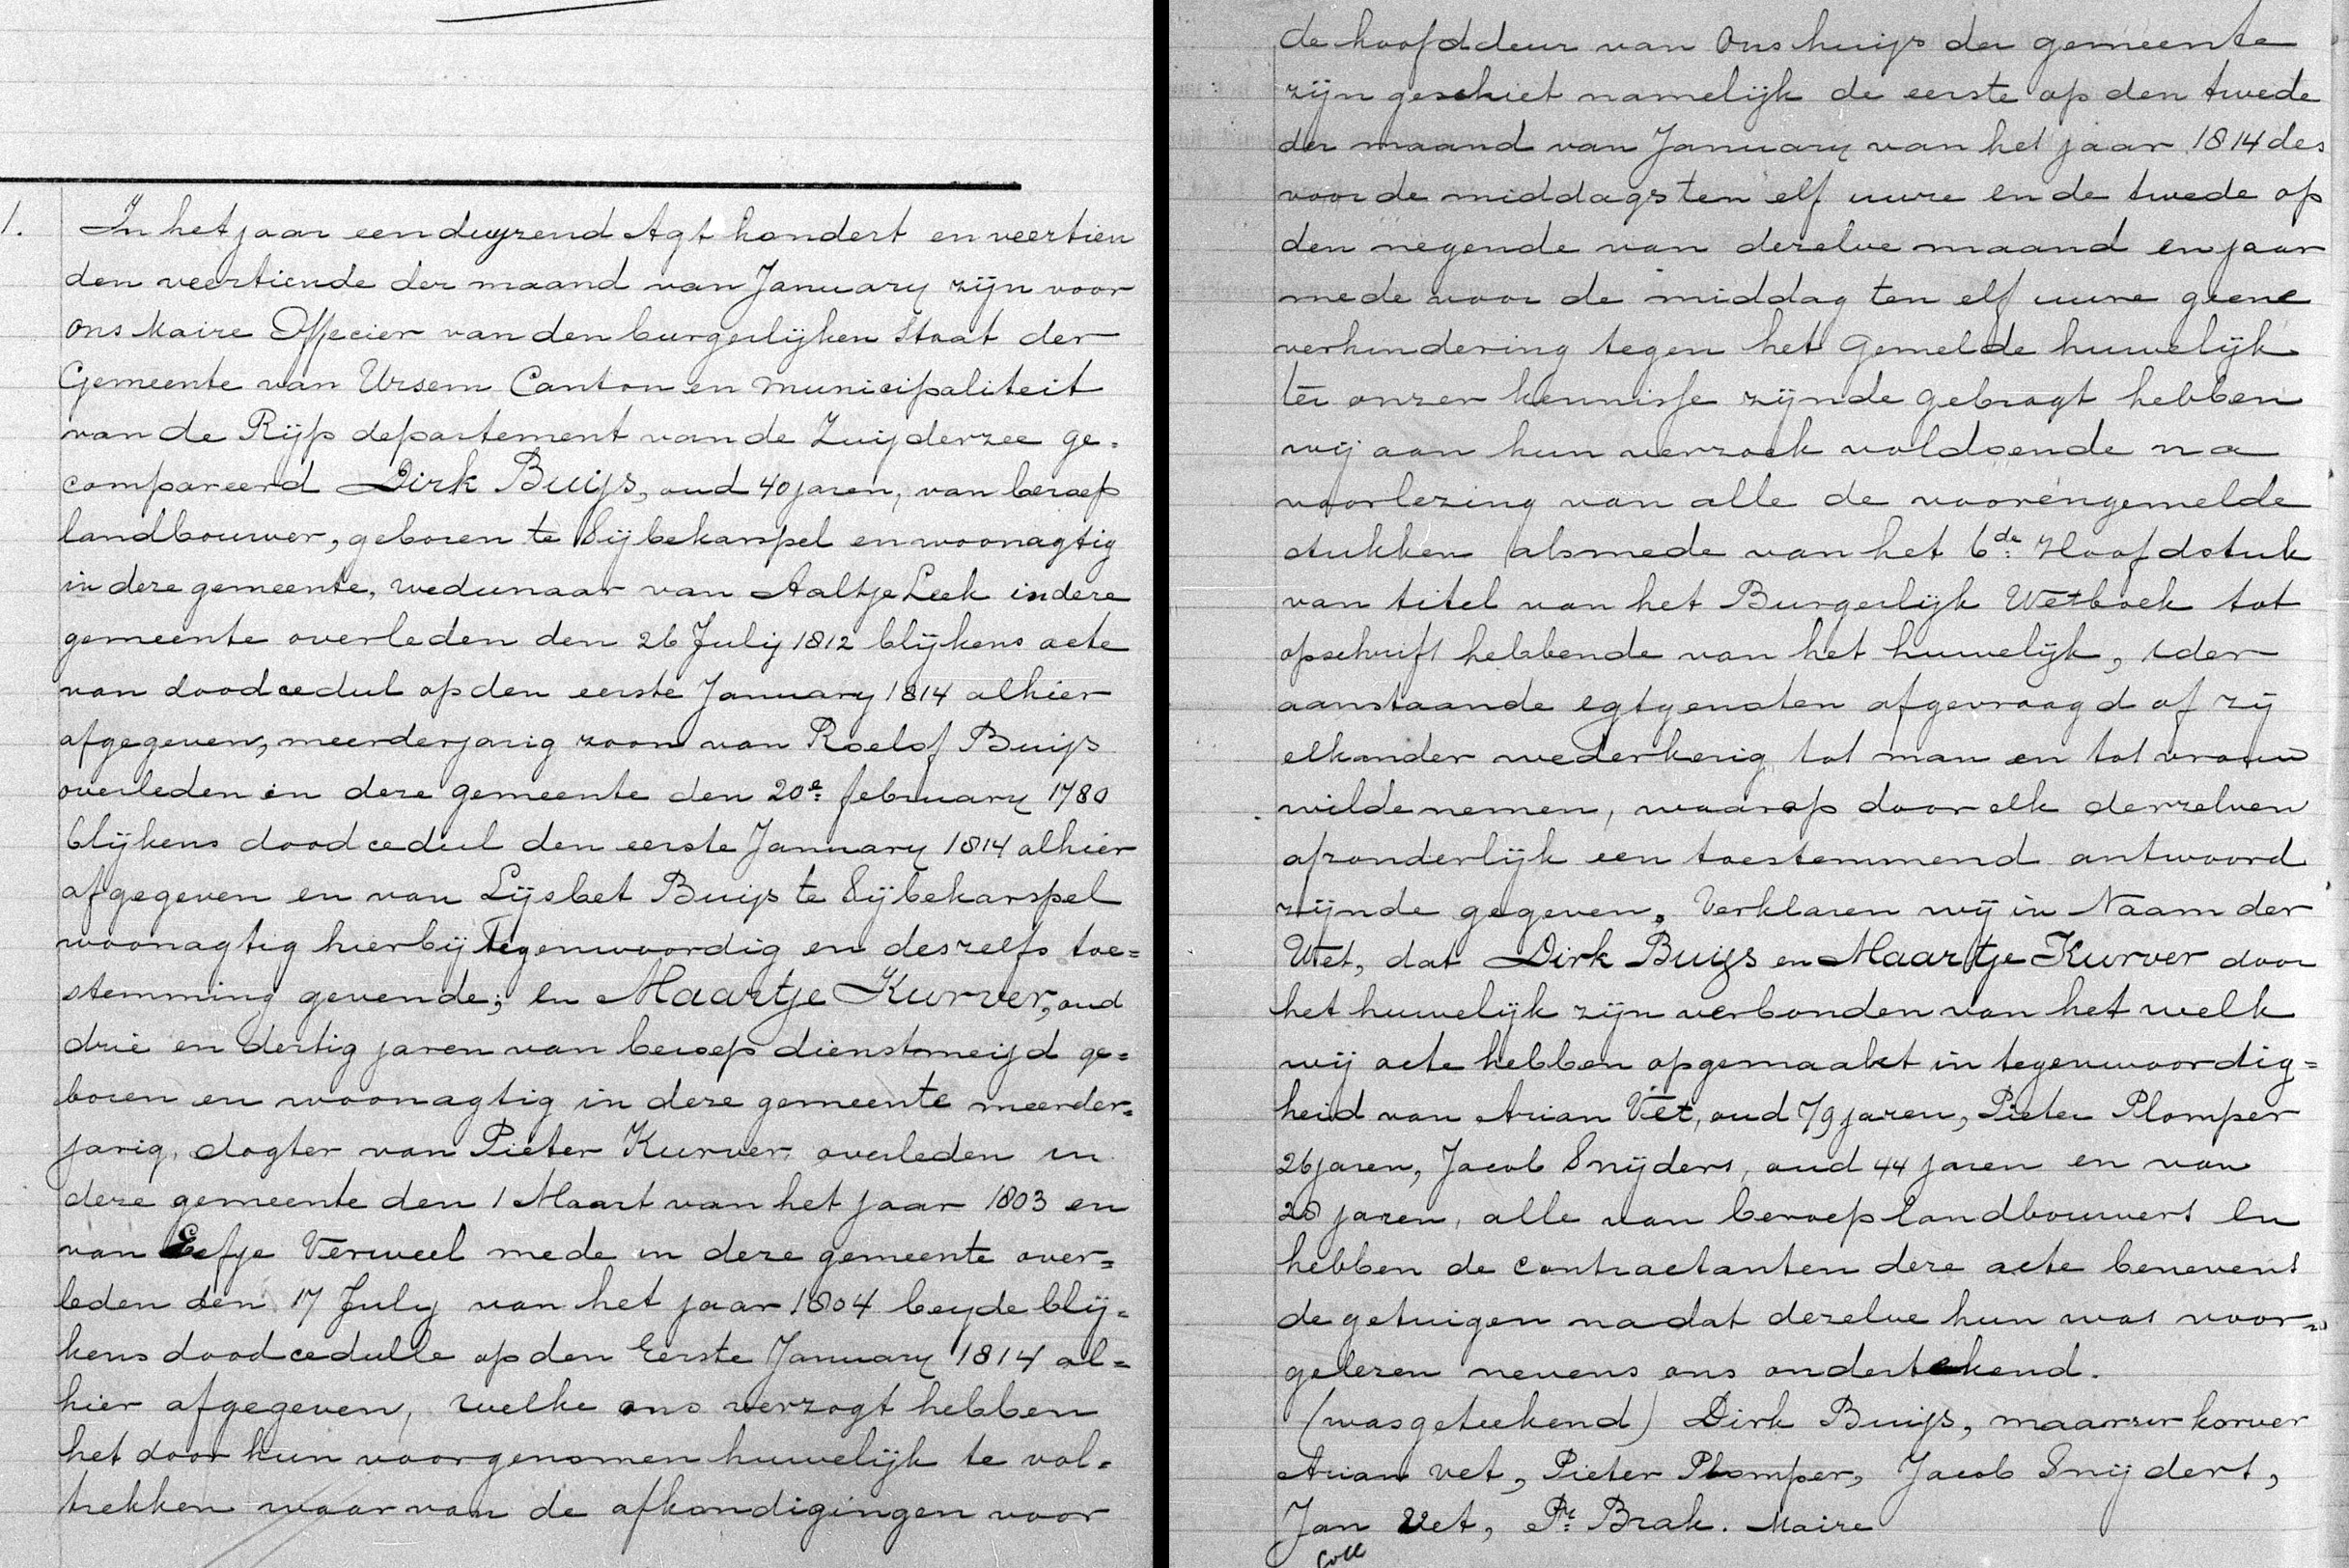 1. In het jaar een duyzend Agt hondert en veertien
den veertiende der maand van January zijn voor
ons Maire Offecier van den burgerlijken Staat der
Gemeente van Ursem Canton en Municipaliteit
van de Rijp departement van de Zuijderzee ge=
compareerd Dirk Buijs, oud 40 jaren, van beroep
landbouwer, geboren te Sijbekarspel en woonagtig
in deze gemeente, wedunaar van Aaltje Leek in deze
gemeente overleden den 26 Julij 1812 blijkens acte
van dood cedul op den eerste January 1814 alhier
afgegeven, meerderjarig zoon van Roelof Buijs
overleden in deze gemeente den 20e february 1780
blijkens dood cedul den eerste January 1814 alhier
afgegeven en van Lijsbet Buijs te Sijbekarspel
woonagtig hierbij Tegenwoordig en deszelfs toe=
stemming gevende; en Maartje Kurver, oud
drie en dertig jaren van beroep dienstmeijd ge=
boren en woonagtig in deze gemeente meerder=
jarig, dogter van Pieter Kurver overleden in
deze gemeente den 1 Maart van het jaar 1803 en
van Eefje Verweel mede in deze gemeente over=
leden den 17 July van het jaar 1804 beyde blij=
kens dood cedulle op den Eerste January 1814 al=
hier afgegeven, welke ons verzogt hebben
het door hun voorgenomen huwelijk te vol=
trekken waarvan de afkondigingen voor
de hoofddeur van Ons huijs der gemeente
zijn geschiet namelijk de eerste op den twede
der maand van January van het jaar 1814 des
voor de middags ten elf uure en de twede op
den negende van dezelve maand en jaar
mede voor de middag ten elf uure geene
verhindering tegen het Gemelde huwelijk
ter onzer kennisse zijnde gebragt hebben
wij aan hun verzoek voldoende na
voorlezing van alle de voorengemelde
stukken alsmede van het 6de Hoofdstuk
van titel van het Burgerlijk Wetboek tot
opschrift hebbende van het huwelijk, ider
aanstaande egtgenoten afgevraagd of zij
elkander wederkerig tot man en tot vrouw
wilde nemen, waarop door elk derzelven
afzonderlijk een toestemmend antwoord
zijnde gegeven, Verklaren wij in Naam der
Wet, dat Dirk Buijs en Maartje Kurver door
het huwelijk zijn verbonden van het welk
wij acte hebben opgemaakt in tegenwoordig=
heid van Arian Vet, oud 79 jaren, Pieter Plomper
26 jaren, Jacob Snijders, oud 44 jaren en van
20 jaren, alle van beroep landbouwers En
hebben de contractanten deze acte benevens
de getuigen nadat dezelve hun was voor=
gelezen nevens ons ondertekend.
(was geteekend) Dirk Buijs, maarser korver
Arian vet, Pieter Plomper, Jacob Snijders,
Jan Vet, Pr. Brak. Maire
Coll